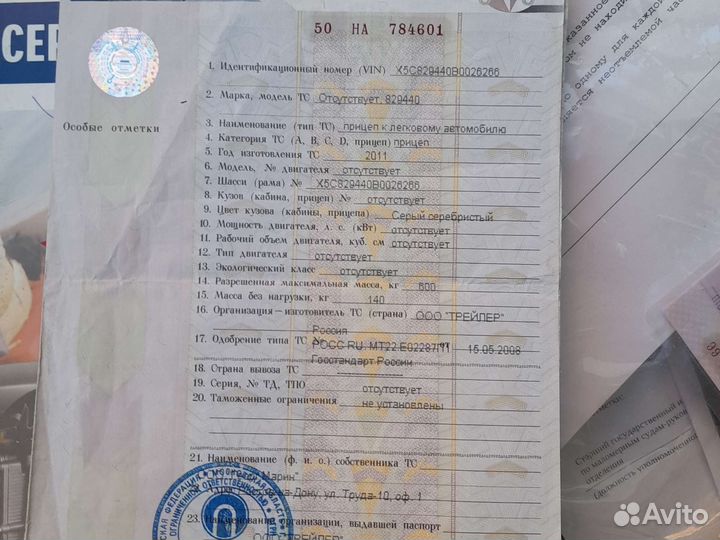 СЕР
50 НА 784601
1. Идентификационный номер (VIN) X5C829440B0026266
2. Марка, модель ТС Отсутствует 829440
Особые отметки
3. Наименование (тип ТС) прицеп к легковому автомобилю
4. Категория ТС (А, В, С, D, прицеп) прицеп
5. Год изготовления ТС 2011
6. Модель, № двигателя отсутствует
7. Шасси (рама) № X5C829440B0026266
8. Кузов (кабина, прицеп) № отсутствует
9. Цвет кузова (кабины, прицепа) Серый серебристый
10. Мощность двигателя, л. с. (кВт) отсутствует
11. Рабочий объем двигателя, куб. см отсутствует
12. Тип двигателя отсутствует
13. Экологический класс отсутствует
14. Разрешенная максимальная масса, кг 600
15. Масса без нагрузки, кг 140
16. Организация—изготовитель ТС (страна) ООО "ТРЕЙЛЕР"
Россия
17. Одобрение типа ТС № РОСС RU. МТ22.Е02287П1 от 15.05.2008
Госстандарт России
18. Страна вывоза ТС
19. Серия, № ТД, ТПО отсутствует
20. Таможенные ограничения не установлены
21. Наименование (ф. и. о.) собственника ТС
Марин"
на-Дону, ул. Труда-10, оф. 1
23. Наименование организации, выдавшей паспорт
ООО "ТРЕЙЛЕР"
казанное
ом не находи
о одному для каждой
яется неотъемлемой час
метки:
Старший государственный и
по маломерным судам-руков
отделения
(должность уполномоченной
Avito